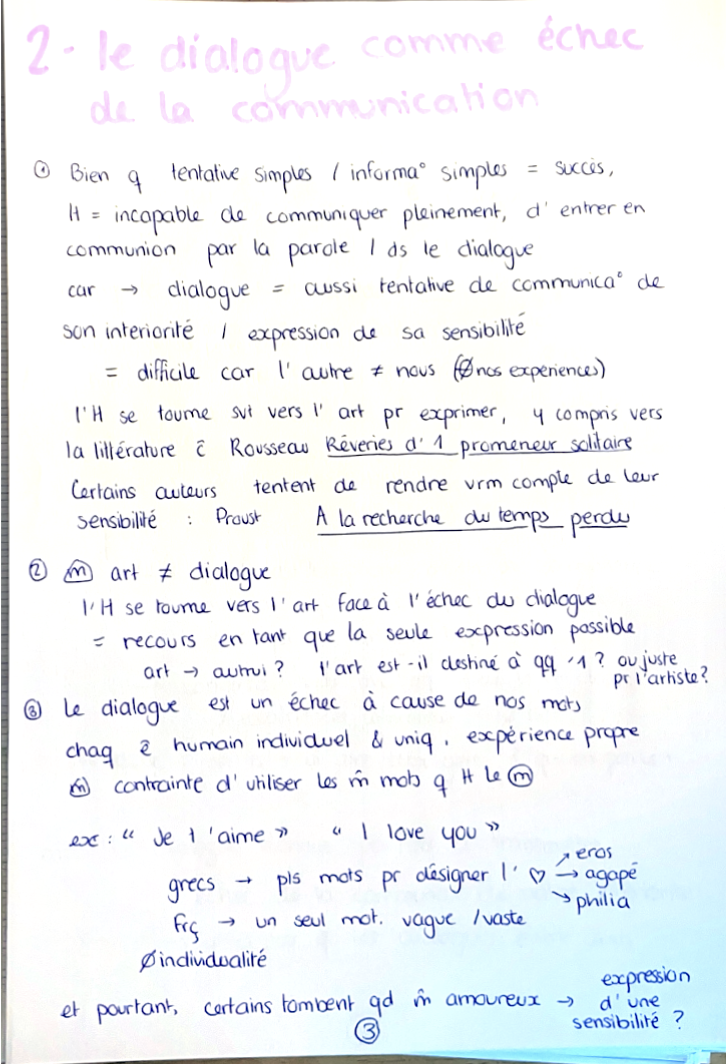 2- le dialogue comme échec
de la communication
① Bien q tentative simples / informa° simples = succès,
H = incapable de communiquer pleinement, d'entrer en
communion par la parole / ds le dialogue
car → dialogue = aussi tentative de communica° de
son interiorité / expression de sa sensibilité
= difficile car l'autre ≠ nous (Ø nos experiences)
l'H se tourne svt vers l'art pr exprimer, y compris vers
la littérature c̄ Rousseau Rêveries d'1 promeneur solitaire
Certains auteurs tentent de rendre vrm compte de leur
sensibilité : Proust A la recherche du temps perdu
② ⓜ art ≠ dialogue
l'H se tourne vers l'art face à l'échec du dialogue
= recours en tant que la seule expression possible
art → autrui ? l'art est-il destiné à qq '1 ? ou juste
pr l'artiste ?
③ Le dialogue est un échec à cause de nos mots
chaq ê humain individuel & uniq, expérience propre
ⓜ contrainte d'utiliser les m̂ mots q tt le ⓜ
ex : " Je t'aime " " I love you "
grecs → pls mots pr désigner l'♡ ↗ eros
→ agapé
↘ philia
frç → un seul mot. vague / vaste
Ø individualité
et pourtant, certains tombent qd m̂ amoureux → expression
d'une
sensibilité ?
③